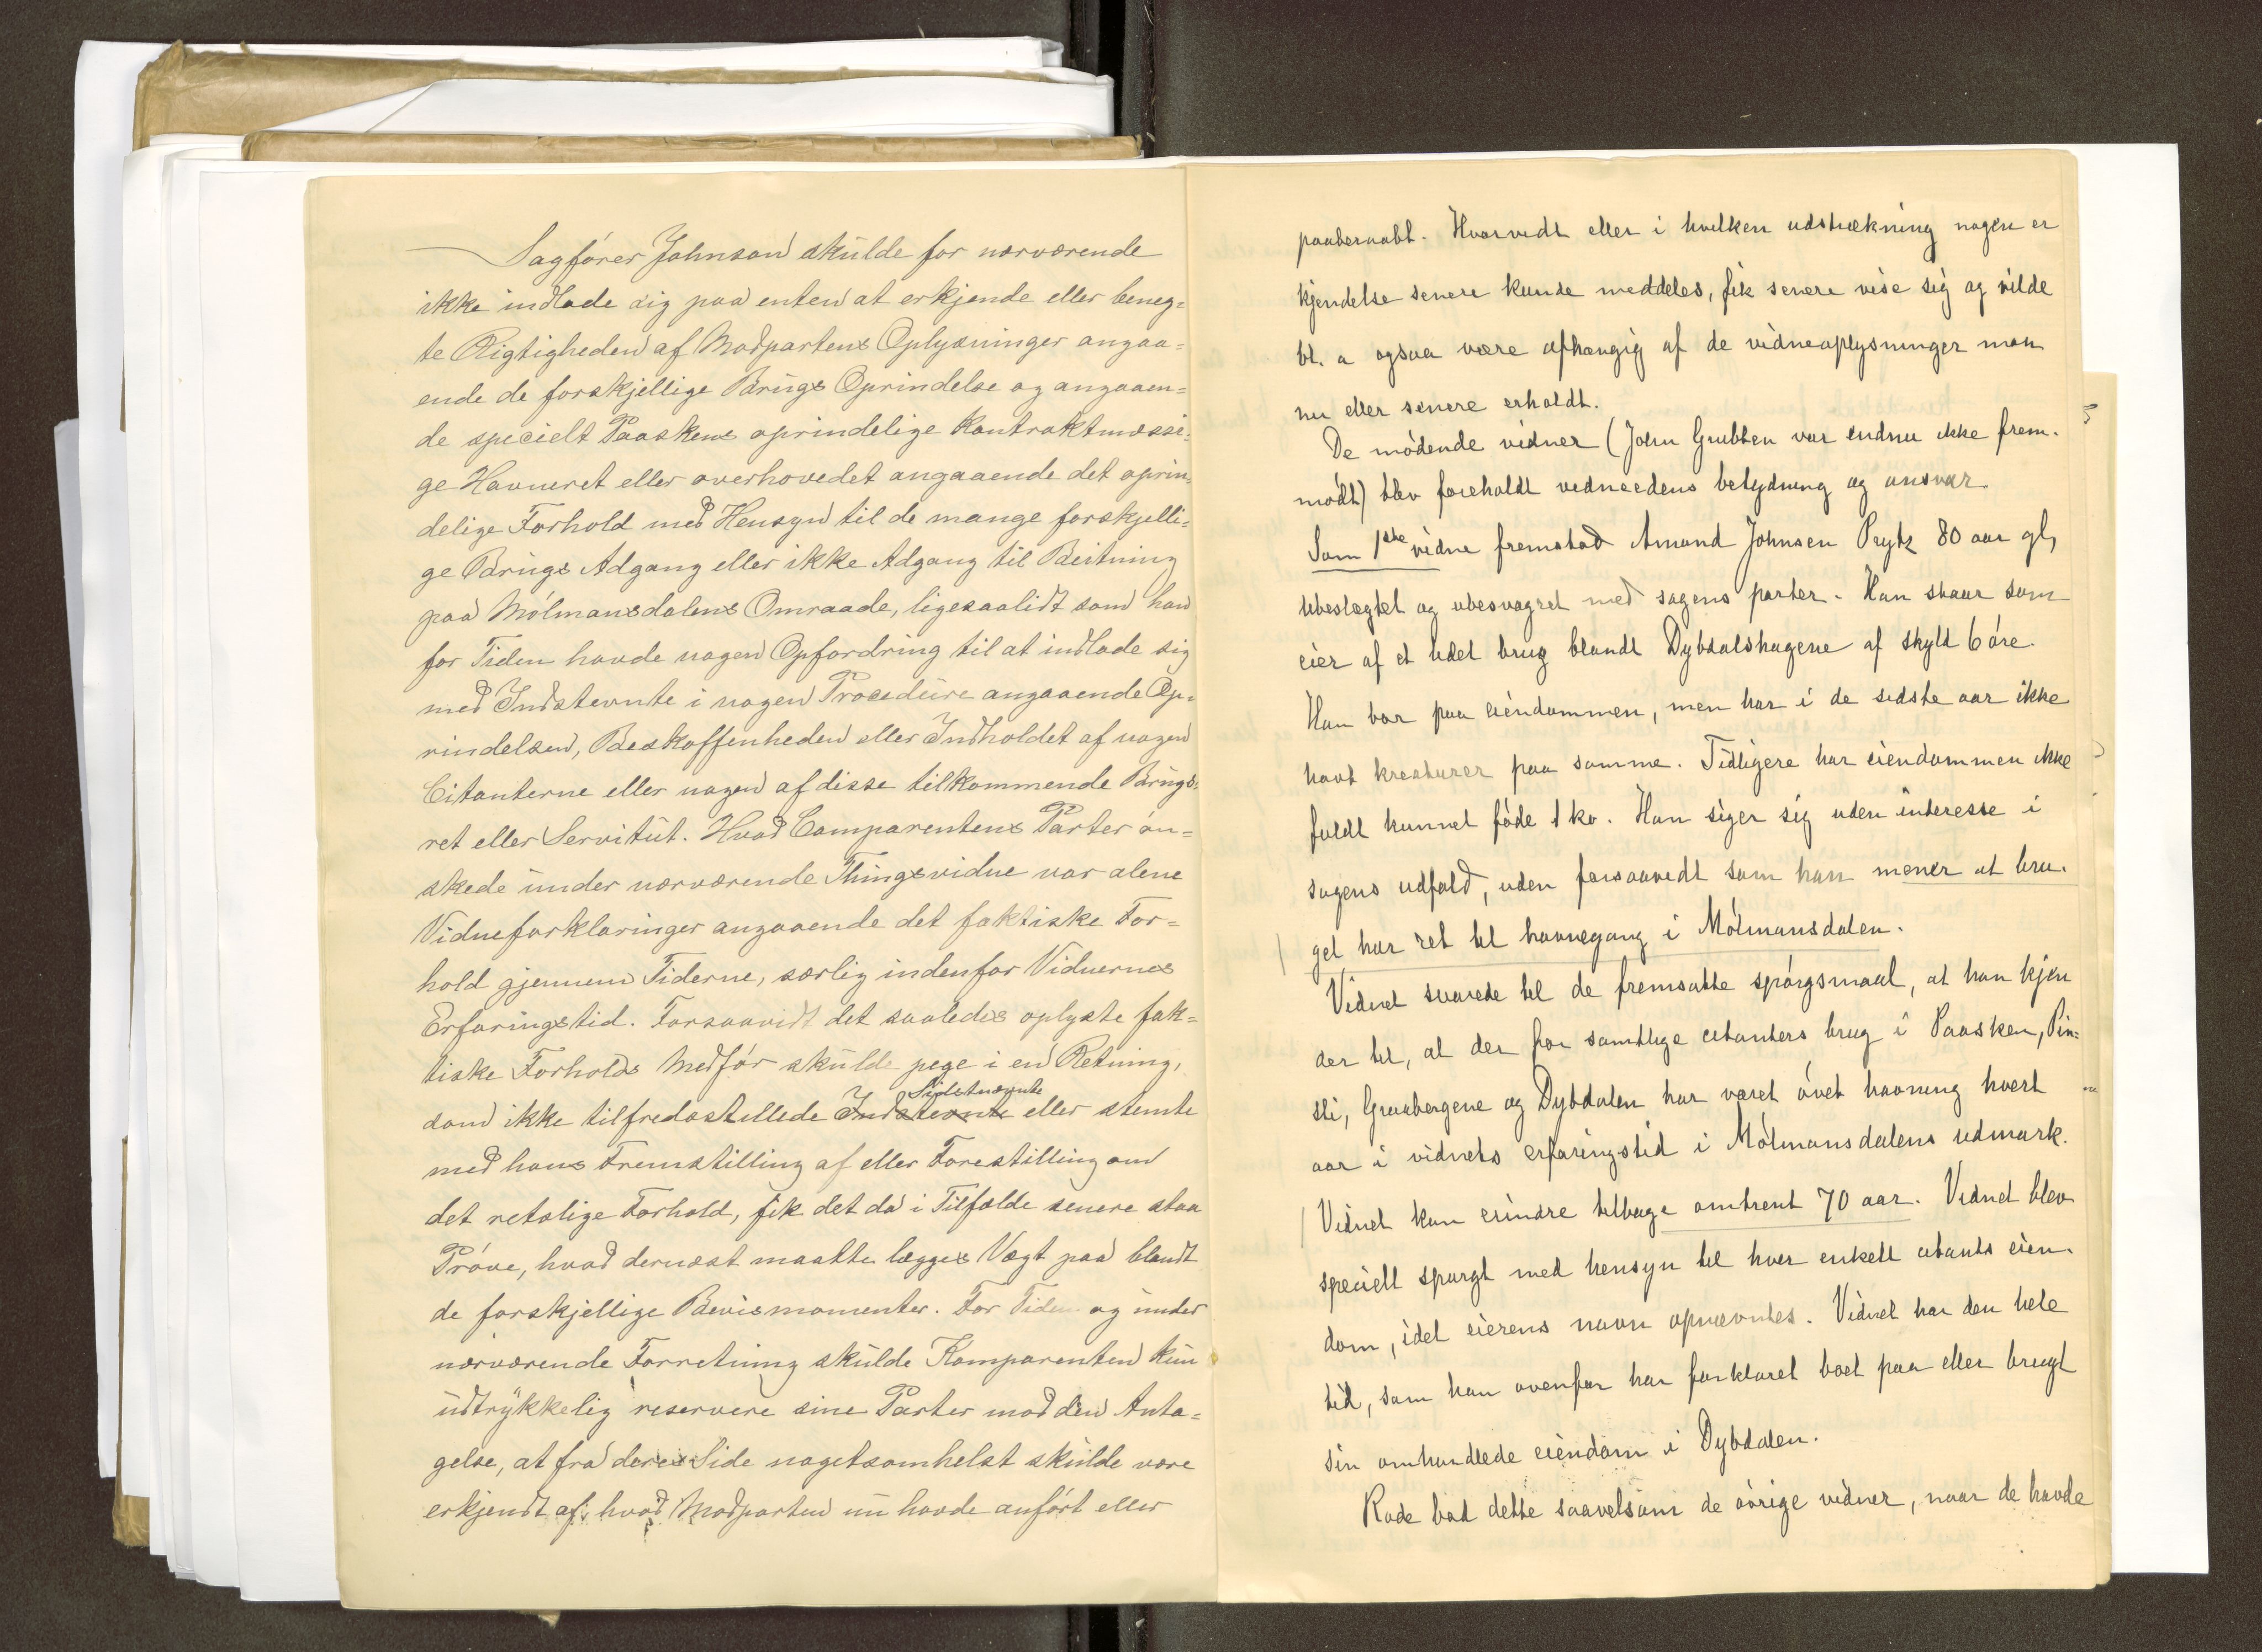 Sagfører Johnson skulde for nærværende
ikke indlade sig paa enten at erkjende eller beneg=
te Rigtigheden af Modpartens Oplysninger angaa=
ende de forskjellige Brugs Oprindelse og angaaen=
de specielt Paaskens oprindelige kontraktmæssi=
ge Havneret eller overhovedet angaaende det oprin=
delige Forhold med Hensyn til de mange forskjelli=
ge Brugs Adgang eller ikke Adgang til Beitning
paa Mólmansdalens Omraade, ligesaalidt som han
for Tiden havde nogen Opfordring til at indlade sig
med Indstevnte i nogen Procedure angaaende Op=
rindelsen, Beskaffenheden eller Indholdet af nogen
Citanterne eller nogen af disse tilkommende Brugs=
ret eller Servitut. Hvad Comparentens Parter ón=
skede under nærværende Thingsvidne var alene
Vidneforklaringer angaaende det faktiske For=
hold gjennem Tiderne, særlig indenfor Vidnernes
Erfaringstid. Forsaavidt det saaledes oplyste fak=
tiske Forholds Medfór skulde pege i en Retning,
som ikke tilfredsstillede Indstevnte Sidstnævnte eller stemte
med hans Fremstilling af eller Forestilling om
det retslige Forhold, fik det da i Tilfælde senere staa
Próve, hvad dernæst maatte lægges Vægt paa blandt
de forskjellige Bevismomenter. For Tiden og under
nærværende Forretning skulde Komparenten kun
udtrykkelig reservere sine Parter mod den Anta=
gelse, at fra deres Side nogetsomhelst skulde være
erkjendt af, hvad Modparten nu havde anfórt eller
paaberaabt. Hvorvidt eller i hvilken udstrækning nogen er
kjendelse senere kunde meddeles, fik senere vise sig og vilde
bl. a ogsaa være afhængig af de vidneoplysninger man
nu eller senere erholdt.
De módende vidner (John Grubben var endnu ikke frem-
módt) blev foreholdt vidneedens betydning og ansvar.
Som 1ste vidne fremstod Amund Johnsen Prytz 80 aar gl,
ubeslægtet og ubesvogret med sagens parter. Han staar som
eier af et lidet brug blandt Dybdalshagene af skyld 6 óre.
Han bor paa eiendommen, men har i de sidste aar ikke
havt kreaturer paa samme. Tidligere har eiendommen ikke
fuldt kunnet fóde 1 ko. Han siger sig uden interesse i
sagens udfald, uden forsaavidt som han mener at bru-
get har ret til havnegang i Mólmansdalen.
Vidnet svarede til de fremsatte spórgsmaal, at han kjen
der til, at der for samtlige citanters brug i Paasken, Pin=
sli, Graabergene og Dybdalen har været óvet havning hvert
aar i vidnets erfaringstid i Mólmansdalens udmark.
Vidnet kan erindre tilbage omtrent 70 aar. Vidnet blev
specielt spurgt med hensyn til hver enkelt citants eien-
dom, idet eierens navn opnævntes. Vidnet har den hele
tid, som han ovenfor har forklaret boet paa eller brugt
sin omhandlede eiendom i Dybdalen.
Rode bad dette saavelsom de óvrige vidner, naar de havde